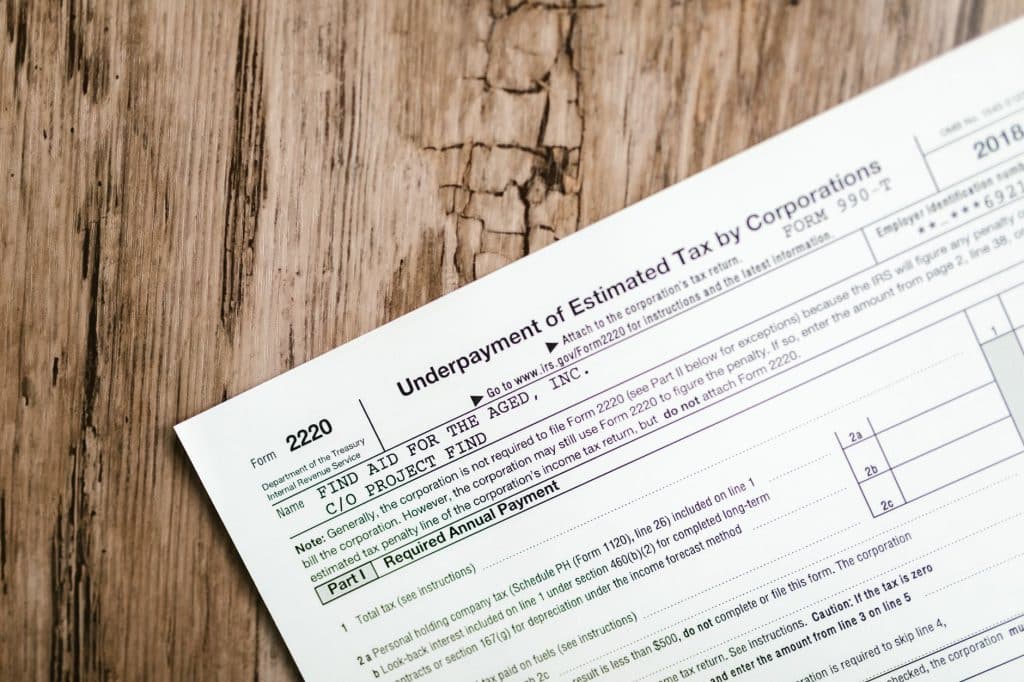 OMB No. 1545-0123
2018
Form 2220
Department of the Treasury
Internal Revenue Service
Underpayment of Estimated Tax by Corporations
FORM 990-T
▶ Attach to the corporation's tax return.
▶ Go to www.irs.gov/Form2220 for instructions and the latest information.
Name
FIND AID FOR THE AGED, INC.
C/O PROJECT FIND
Employer identification
**-***6921
Note: Generally, the corporation is not required to file Form 2220 (see Part II below for exceptions) because the IRS will figure any penalty
bill the corporation. However, the corporation may still use Form 2220 to figure the penalty. If so, enter the amount from page 2, line 38,
estimated tax penalty line of the corporation's income tax return, but do not attach Form 2220.
Part I Required Annual Payment
1 Total tax (see instructions)
1
2 a Personal holding company tax (Schedule PH (Form 1120), line 26) included on line 1
2a
b Look-back interest included on line 1 under section 460(b)(2) for completed long-term
contracts or section 167(g) for depreciation under the income forecast method
2b
tax paid on fuels (see instructions)
2c
2c
result is less than $500, do not complete or file this form. The corporation
income tax return. See instructions. Caution: If the tax is zero
and enter the amount from line 3 on line 5
is required to skip line 4,
checked, the corporation